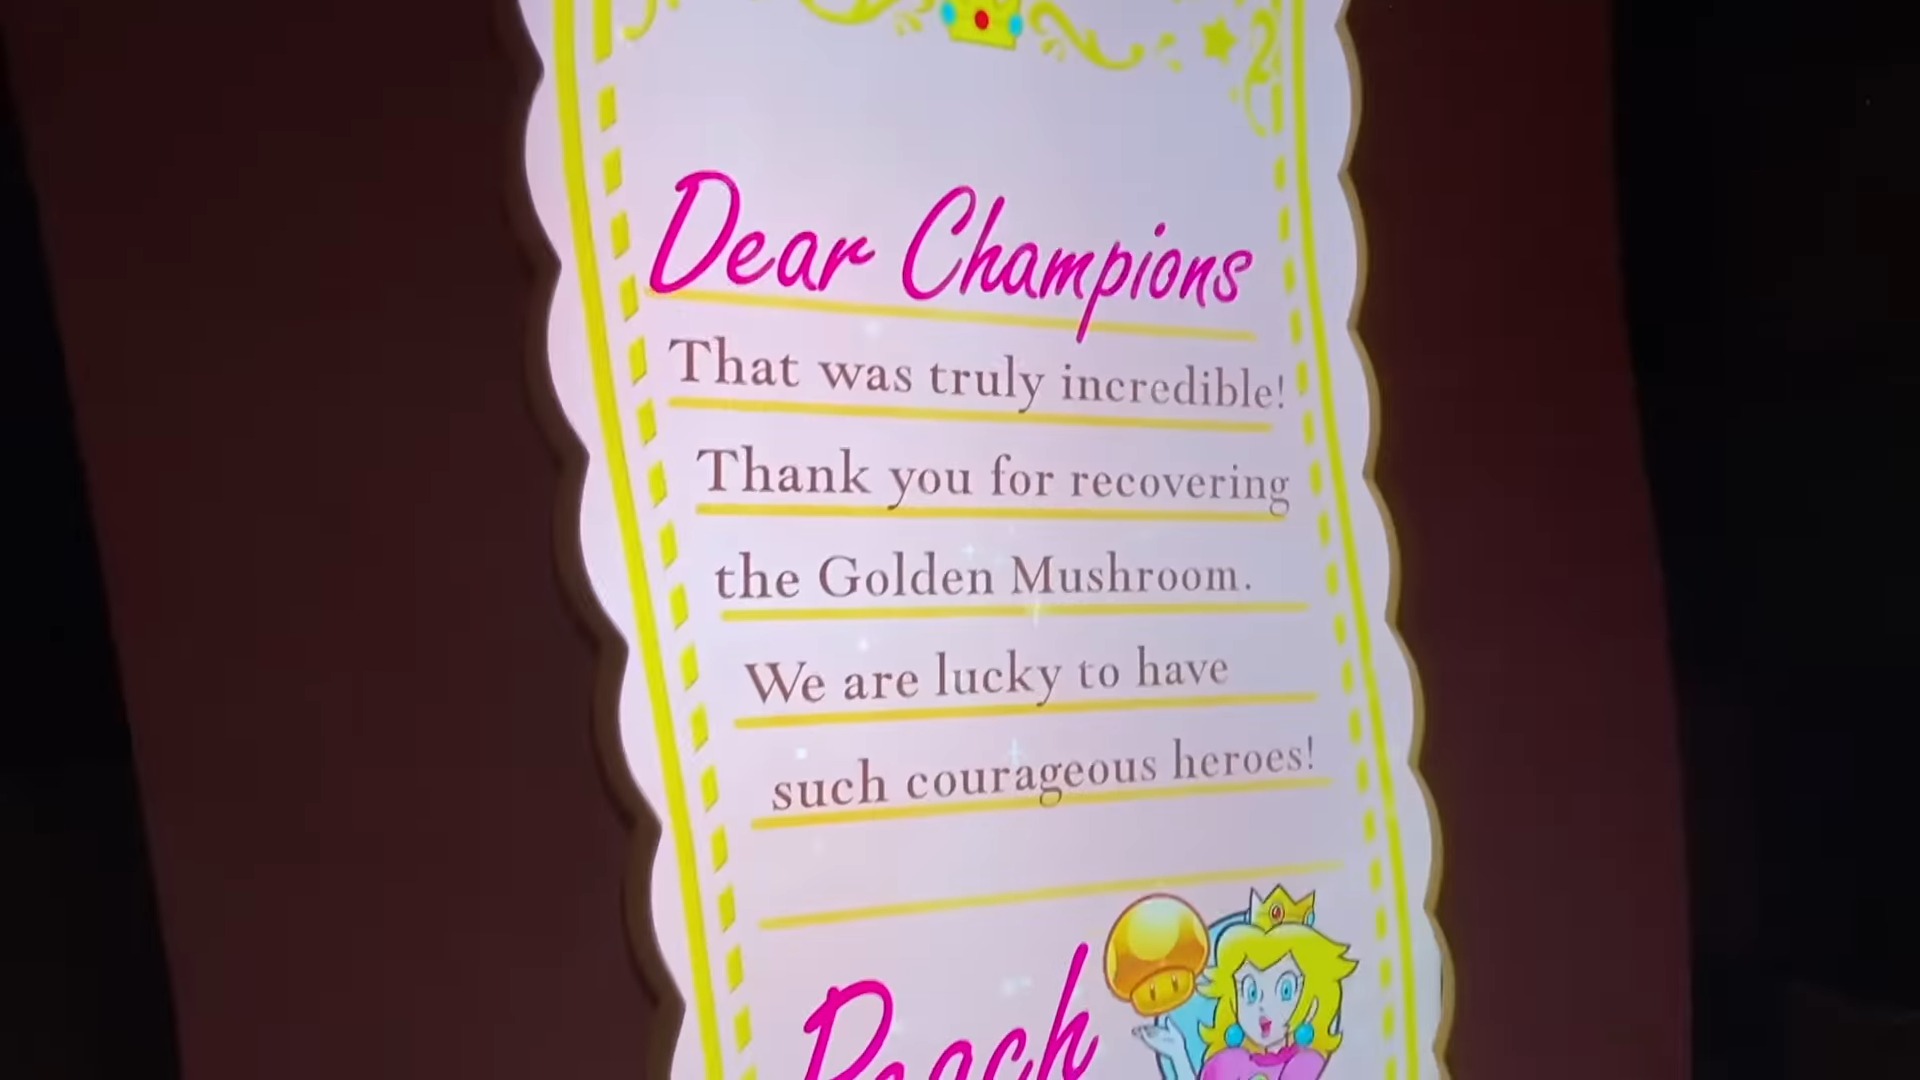 Dear Champions
That was truly incredible!
Thank you for recovering
the Golden Mushroom.
We are lucky to have
such courageous heroes!
Peach